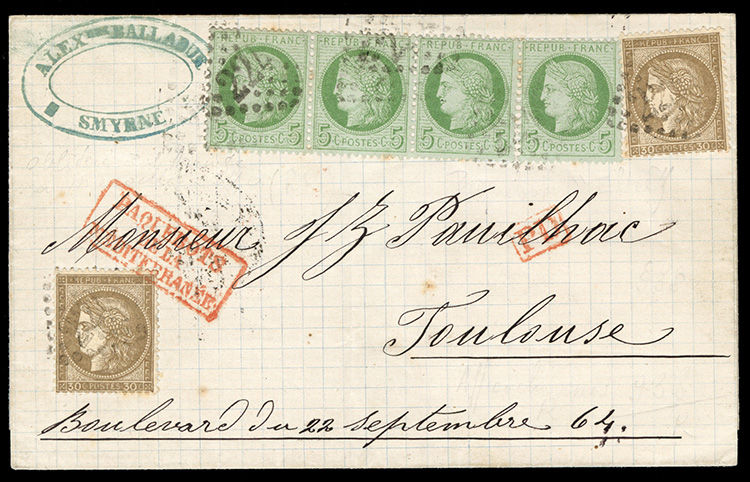 ALEX BALLADUR
SMYRNE
REPUB·FRANC REPUB·FRANC REPUB·FRANC REPUB·FRANC
5 C POSTES C 5 5 C POSTES C 5 5 C POSTES C 5 5 C POSTES C 5
REPUB·FRANC
30 C POSTES 30 C
PAQUEBOTS
DE LA
MEDITERRANÉE
Monsieur J Z Pauilhac
Toulouse
REPUB·FRANC
30 C POSTES 30 C
Boulevard du 22 septembre 64.